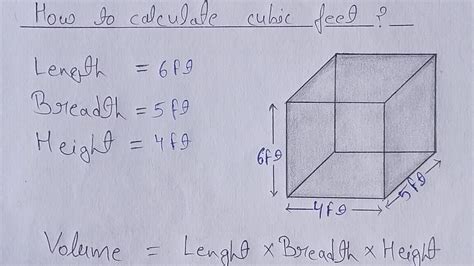 How to calculate cubic feet ?
Length = 6ft
Breadth = 5ft
Height = 4ft
6ft
5ft
4ft
Volume = Lenght × Breadth × Height